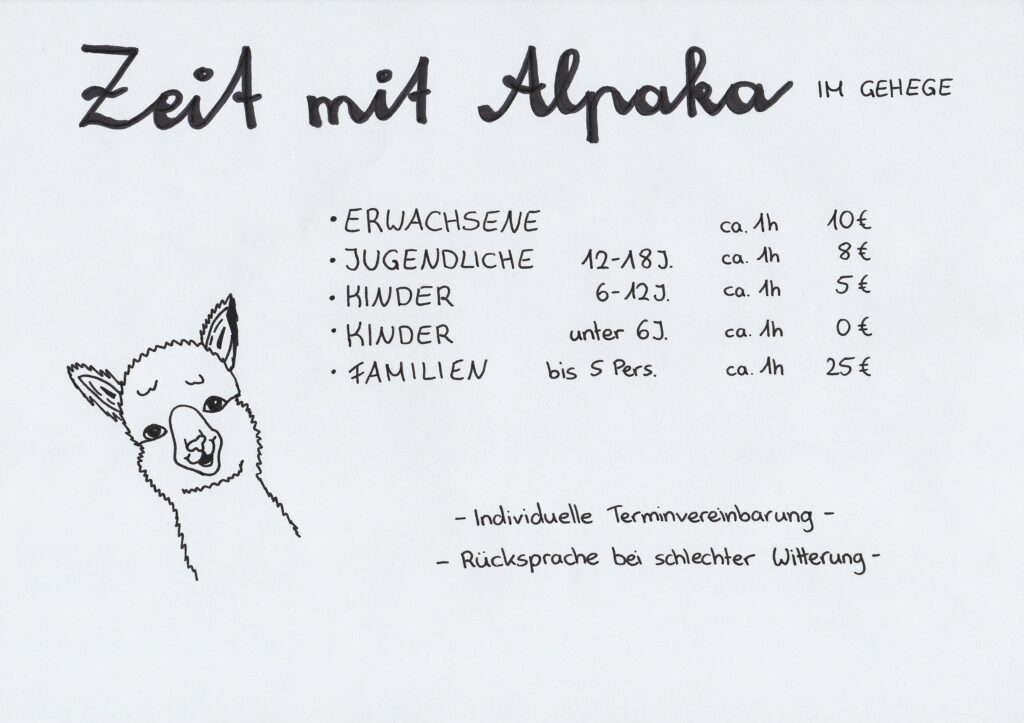 Zeit mit Alpaka IM GEHEGE
• ERWACHSENE ca. 1h 10€
• JUGENDLICHE 12-18J. ca. 1h 8€
• KINDER 6-12J. ca. 1h 5€
• KINDER unter 6J. ca. 1h 0€
• FAMILIEN bis 5 Pers. ca. 1h 25€
- Individuelle Terminvereinbarung -
- Rücksprache bei schlechter Witterung -